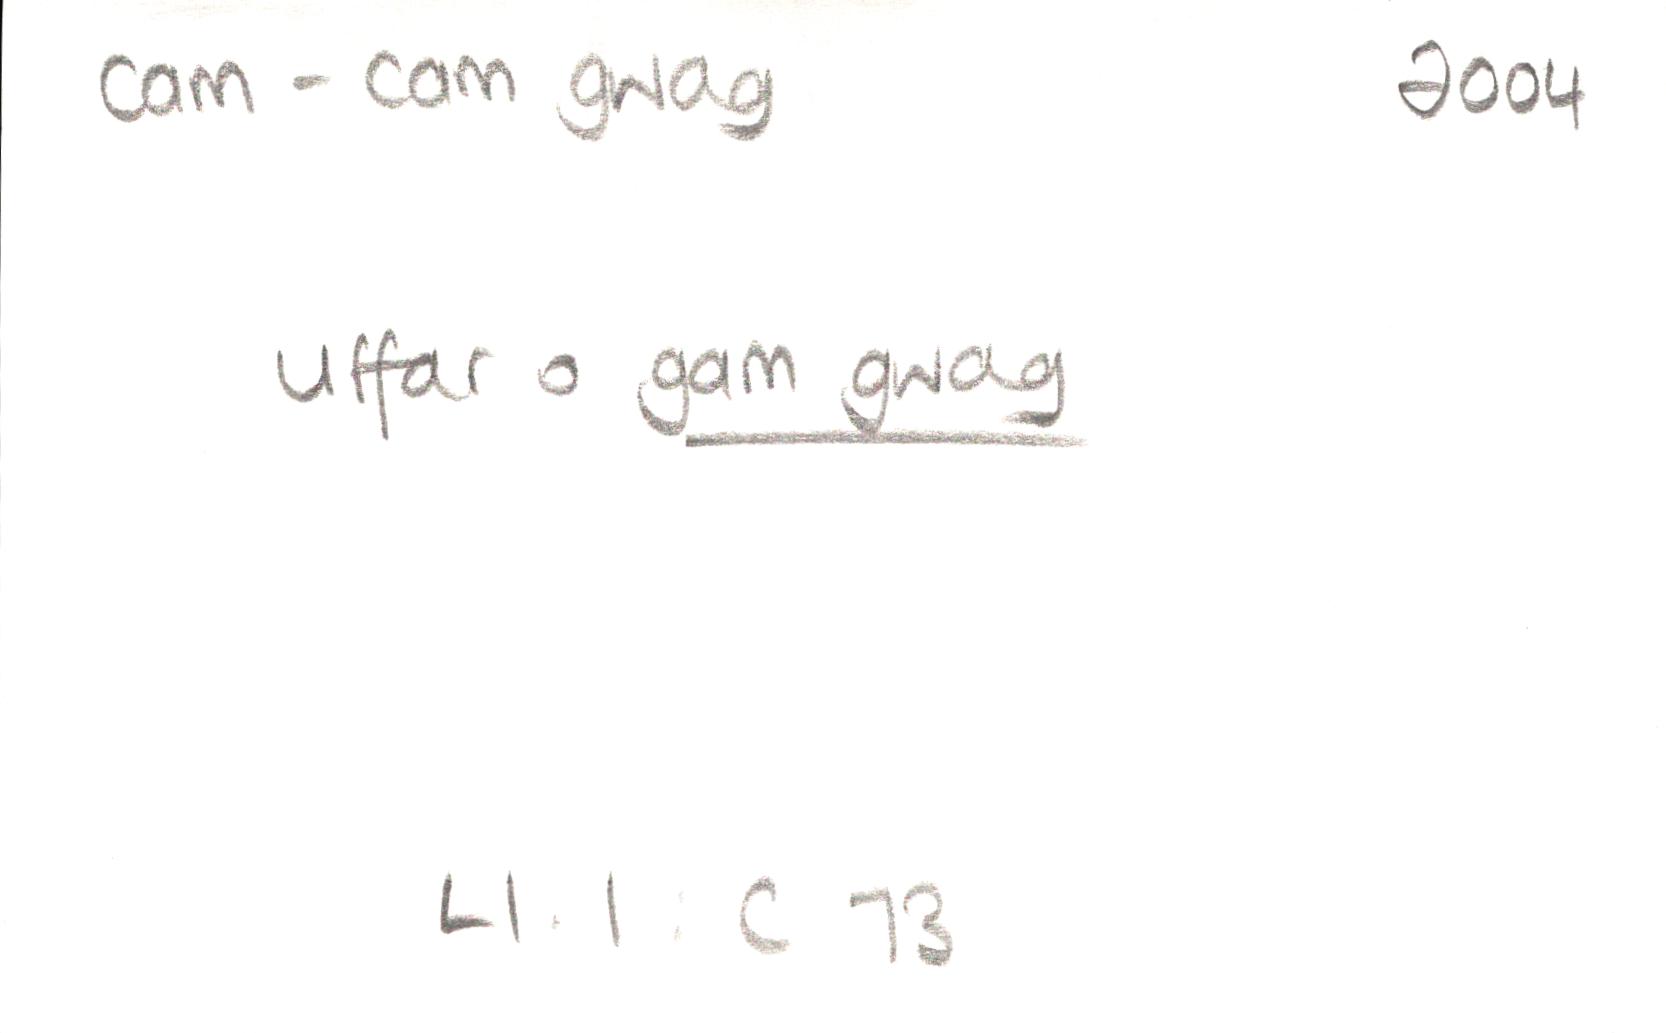 cam - cam gwag 2004
uffar o gam gwag
Ll. 1 : C 73